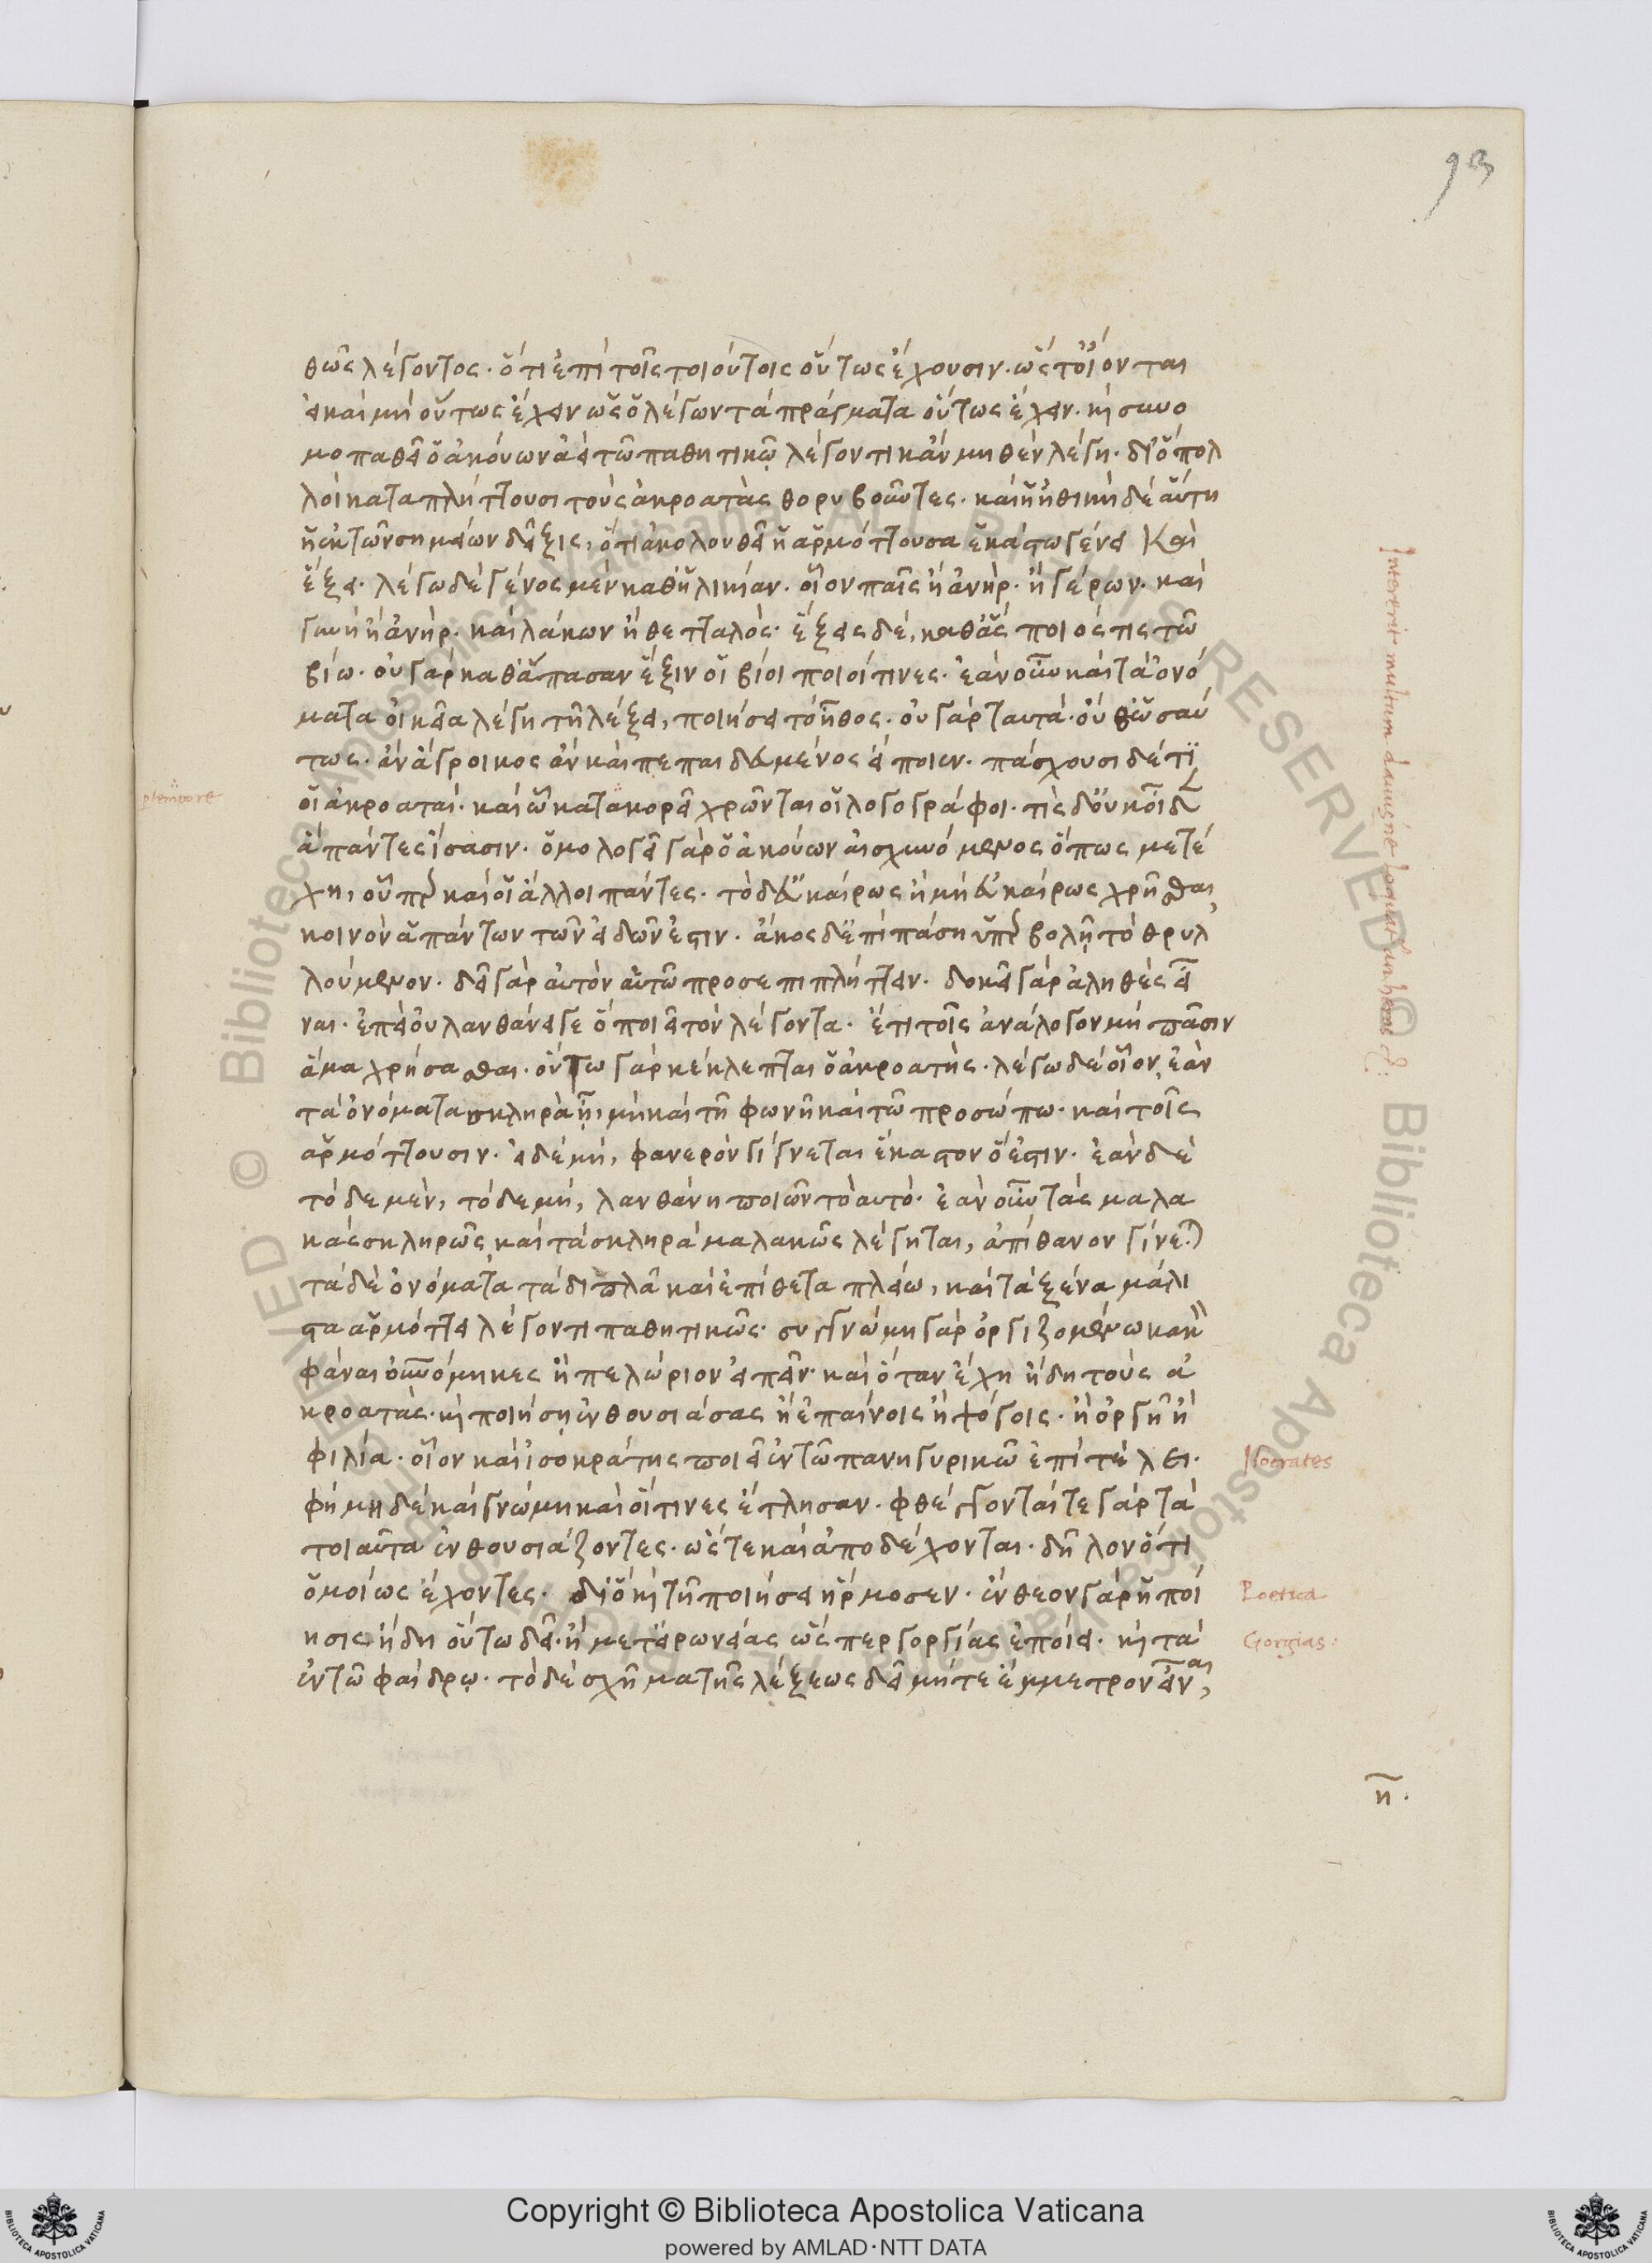 93
θῶς λέγοντος· ὅτι ἐπὶ τοῖς τοιούτοις οὕτως ἔχουσιν· ὥστ' οἴονται
εἰ καὶ μὴ οὕτως ἔχειν ὡς ὁ λέγων τὰ πράγματα οὕτως ἔχειν· κὶ συνο
μοπαθεῖ ὁ ἀκούων ἀεὶ τῶ παθητικῷ λέγοντι κἂν μηθὲν λέγη· διὸ πολ
λοὶ καταπλήττουσι τοὺς ἀκροατὰς θορυβοῦντες· καὶ ἠθικὴ δὲ αὕτη
ἡ ἐκ τῶν σημείων δεῖξις, ὅτι ἀκολουθεῖ ἡ ἁρμόττουσα ἑκάστω γένει Καὶ
ἕξει· λέγω δὲ γένος μὲν καθ' ἡλικίαν· οἷον παῖς ἢ ἀνὴρ· ἢ γέρων· καὶ
γυνὴ ἢ ἀνήρ· καὶ λάκων ἢ θετταλός· ἕξεις δὲ, καθ' ἃς ποιός τις τῶ
βίω· οὐ γὰρ καθ' ἅπασαν ἕξιν οἱ βίοι ποιοί τινες· ἐὰν οὖν καὶ τὰ ὀνό
ματα οἰκεῖα λέγη τῆ λέξει, ποιήσει τὸ ἦθος· οὐ γὰρ ταυτὰ· οὐδ' ὡσαύ
τως· ἂν ἄγροικος ἂν καὶ πεπαιδευμένος εἴποιεν· πάσχουσι δέ τι
οἱ ἀκροαταί· καὶ ᾧ κατακορεῖ χρῶνται οἱ λογογράφοι· τίς δ' οὐκ οἶδεν
ἅπαντες ἴσασιν· ὁμολογεῖ γὰρ ὁ ἀκούων αἰσχυνόμενος ὅπως μετέ
χη, οὗπερ καὶ οἱ ἄλλοι πάντες· τὸ δ' εὐκαίρως ἢ μὴ εὐκαίρως χρῆσθαι,
κοινὸν ἁπάντων τῶν εἰδῶν ἐστιν· ἄκος δ' ἐπὶ πάση ὑπερβολῇ τὸ θρυλ
λούμενον· δεῖ γὰρ αὐτὸν αὑτῶ προσεπιπλήττειν· δοκεῖ γὰρ ἀληθὲς εἶ
ναι· ἐπεὶ οὐ λανθάνει γε ὃ ποιεῖ τὸν λέγοντα· ἔτι τοῖς ἀνάλογον μὴ πᾶσιν
ἅμα χρήσασθαι· οὕτω γὰρ κέκλεπται ὁ ἀκροατής· λέγω δὲ οἷον, ἐὰν
τὰ ὀνόματα σκληρὰ ᾖ, μὴ καὶ τῆ φωνῆ καὶ τῶ προσώπω· καὶ τοῖς
ἁρμόττουσιν· εἰ δὲ μὴ, φανερὸν γίγνεται ἕκαστον ὅ ἐστιν· ἐὰν δὲ
τὸ δε μὲν, τὸ δε μὴ, λανθάνη ποιῶν τὸ αυτό· ἐὰν οὖν τὰς μαλα
κὰς σκληρῶς, καὶ τὰ σκληρὰ μαλακῶς λέγηται, ἀπίθανον γίνεται
τὰ δὲ ὀνόματα τὰ διπλᾶ καὶ ἐπίθετα πλείω, καὶ τὰ ξένα μάλι
στα ἁρμόττει λέγοντι παθητικῶς· συγγνώμη γὰρ ὀργιζομένω κακὸν
φάναι οὐρανόμηκες ἢ πελώριον εἰπεῖν· καὶ ὅταν ἔχη ἤδη τοὺς ἀ
κροατὰς· κὶ ποιήσῃ ἐνθουσιάσας ἢ ἐπαίνοις ἢ ψόγοις· ἢ ὀργῆ ἢ
φιλία· οἷον καὶ ἰσοκράτης ποιεῖ ἐν τῶ πανηγυρικῶ ἐπὶ τέλει·
φήμη δὲ καὶ γνώμη καὶ οἵτινες ἔτλησαν· φθέγγονταί τε γὰρ τὰ
τοιαῦτα ἐνθουσιάζοντες· ὥστε καὶ ἀποδέχονται· δῆλον ὅτι
ὁμοίως ἔχοντες· διὸ κὶ τῆ ποιήσει ἥρμοσεν· ἔνθεον γὰρ ἡ ποί
ησις, ἤδη οὕτω δεῖ· ἢ μετ' εἰρωνείας ὥσπερ γοργίας ἐποίει· κὶ τὰ
ἐν τῶ φαίδρῳ· τὸ δὲ σχῆμα τῆς λέξεως δεῖ μήτε ἔμμετρον εἶναι,
Isocrates
Poetica
Gorgias:
η·
Copyright © Biblioteca Apostolica Vaticana
powered by AMLAD·NTT DATA